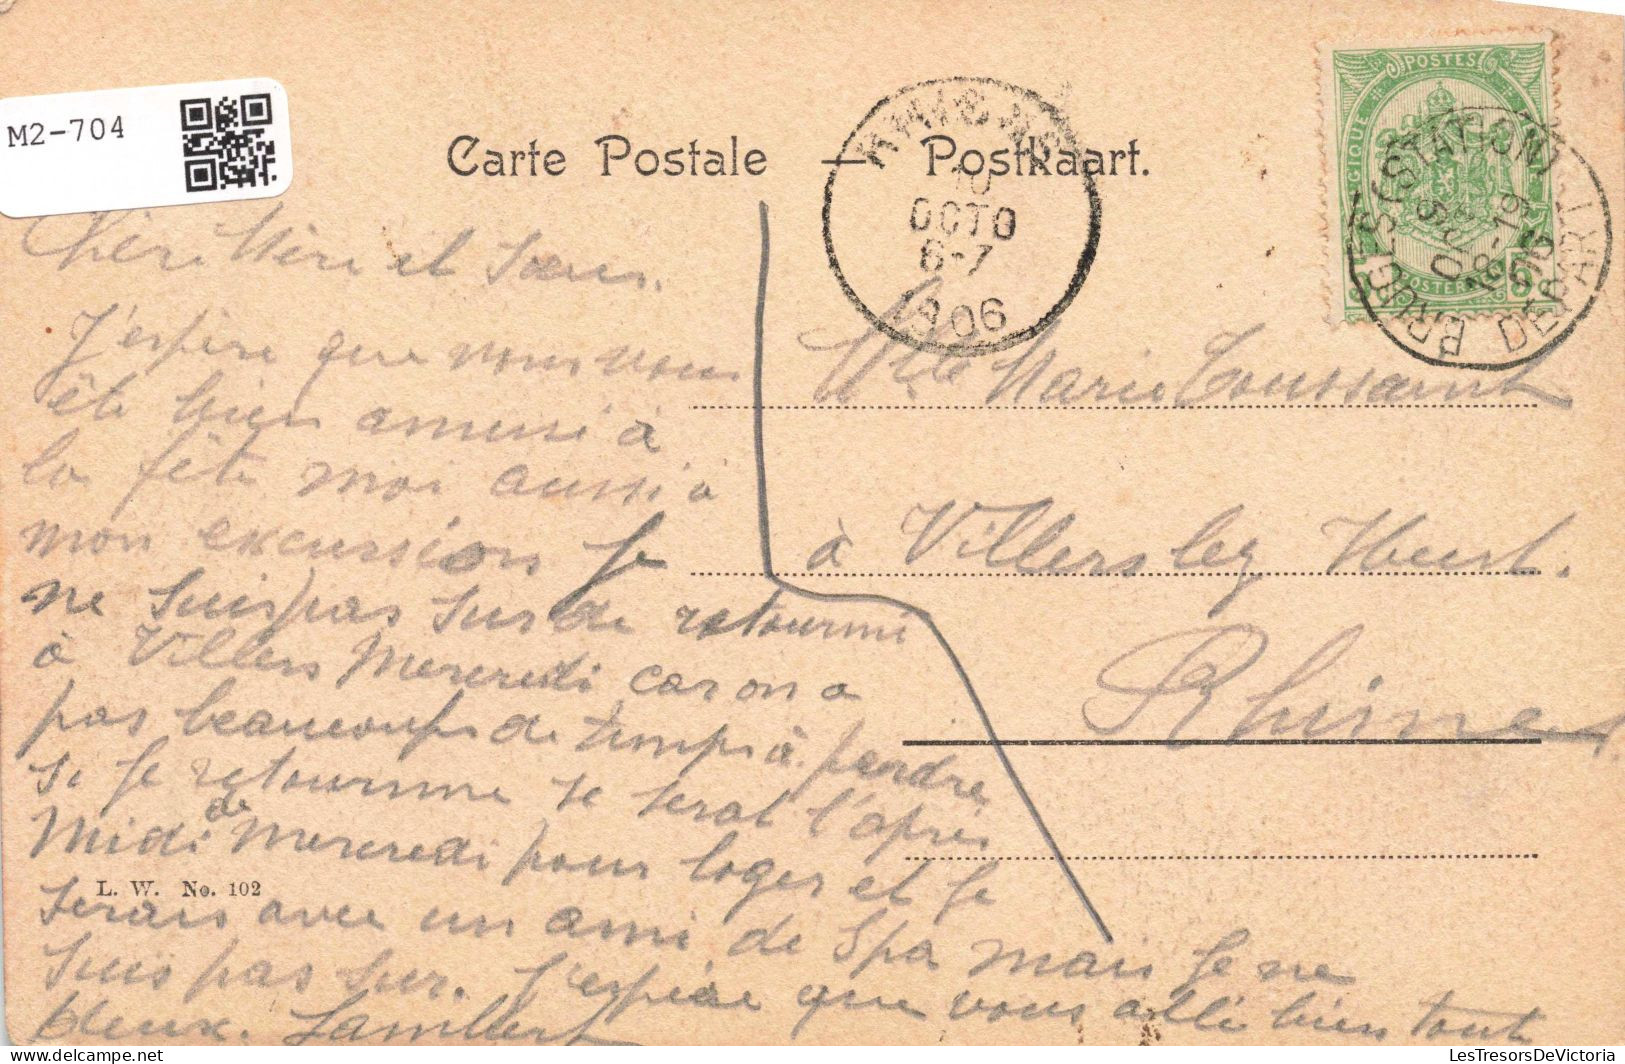 M2-704
Carte Postale — Postkaart.
POSTES
BELGIQUE
POSTERIJEN
5
BRUGES (STATION)
9 OCT
18-19
1906
DEPART
10
OCTO
6-7
1906
Chère Mère et Soeur.
J'espère que vous vous
ête bien amusé à
la fête moi aussi à
mon excursion Je
ne suis pas sur de retourné
à Villers Mercredi car on a
pas beaucoups de temps à perdre
si je retourne se serat l'après
Midi de Mercredi pour loger et je
serais avec un ami de Spa mais je ne
suis pas sur. J'espère que vous allé bien tout
deux. Lambert
Mlle Marie Toussaint
à Villers ley Heest.
Rhisnes
L. W. No. 102
www.LesTresorsDeVictoria.com